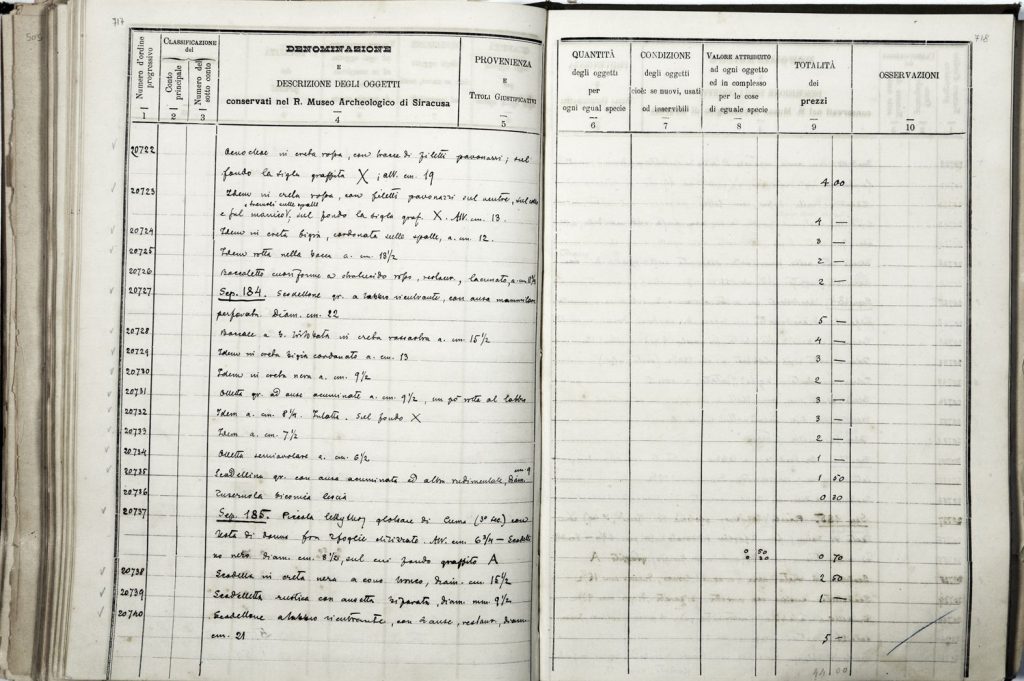 717
505
Numero d'ordine progressivo
1
CLASSIFICAZIONE del
Conto principale
2
Numero del sotto conto
3
DENOMINAZIONE
E
DESCRIZIONE DEGLI OGGETTI
conservati nel R. Museo Archeologico di Siracusa
4
PROVENIENZA
E
TITOLI GIUSTIFICATIVI
5
20722
in creta rossa, con tracce di filetti pavonazzi; sul
fondo la sigla graffita X; alt. cm. 19
20723 Idem in creta rossa, con filetti pavonazzi sul ventre, sul collo
e tremoli sulle spalle
e sul manico, sul fondo la sigla graf. X. Alt. cm. 13.
20724 Idem in creta bigia, cordonata sulle spalle, a. cm. 12.
20725 Idem rotta nella bocca a. cm. 13 1/2
20726 Boccaletto cuoriforme a rosso, restaur., lacunato, a. cm.
20727 Sep. 184. Scodellone gr. a labbro rientrante, con ansa
perforata. Diam. cm. 22
20728 Boccale a b. trilobata in creta rossastra a. cm. 15 1/2
20729 Idem in creta bigia cordonato a. cm. 13
20730 Idem in creta nera a. cm. 9 1/2
20731 Olletta gr. ad anse acuminate a. cm. 9 1/2, un pò rotta al labbro
20732 Idem a. cm. 8 1/4. Sul fondo X
20733 Idem a. cm. 7 1/2
20734 Olletta semiovolare a. cm. 6 1/2
20735 Scodellina gr. con ansa acuminata ed altra rudimentale, diam. cm. 9
20736 Fuseruola biconica liscia
20737 Sep. 185. Piccola lekythos globare di Cuma (3° sec.) con
testa di donna fra 2 foglie Alt. cm. 6 3/4 — Scodelli
no nero diam. cm. 8 1/2, sul cui fondo graffito A
20738 Scodella in creta nera a cono tronco, diam. cm 15 1/2
20739 Scodelletta rustica con ansetta bifora, diam. mm. 9 1/2
20740 Scodellone a labbro rientrante, con 2 anse, restaur., diam.
cm. 21
718
QUANTITÀ
degli oggetti
per
ogni egual specie
6
CONDIZIONE
degli oggetti
cioè: se nuovi, usati
od inservibili
7
VALORE ATTRIBUITO
ad ogni oggetto
ed in complesso
per le cose
di eguale specie
8
TOTALITÀ
dei
prezzi
9
OSSERVAZIONI
10
4 00
4 —
3 —
2 —
2 —
5 —
4 —
3 —
2 —
3 —
3 —
2 —
1 —
1 50
0 20
0 50
0 20 0 70
2 50
1 —
5 —